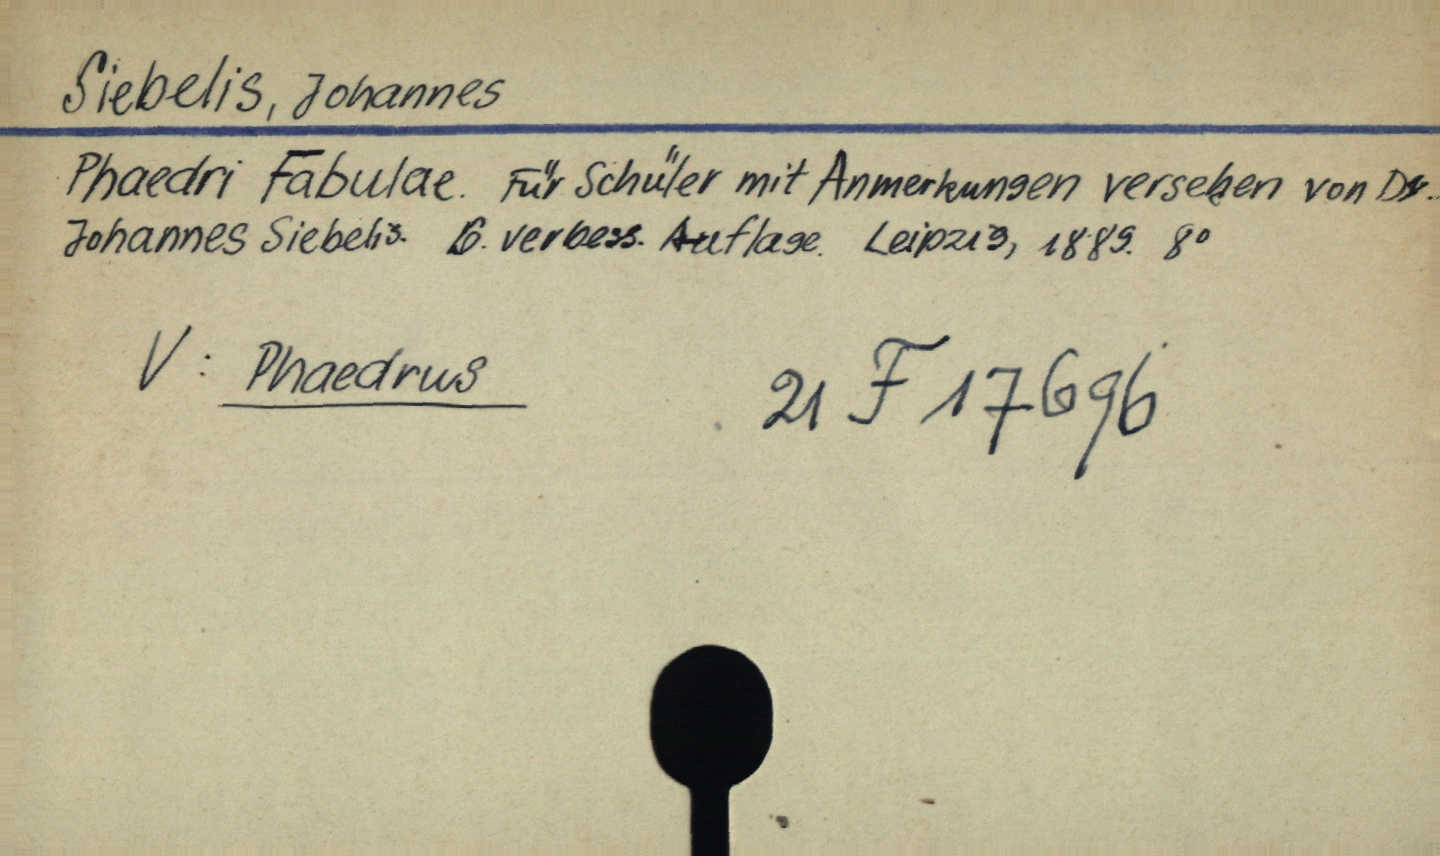 Siebelis, Johannes
Phaedri Fabulae. Für Schüler mit Anmerkungen versehen von Dr.
Johannes Siebelis. 6. verbess. Auflage. Leipzig, 1889. 8°
V: Phaedrus
21 F 17696